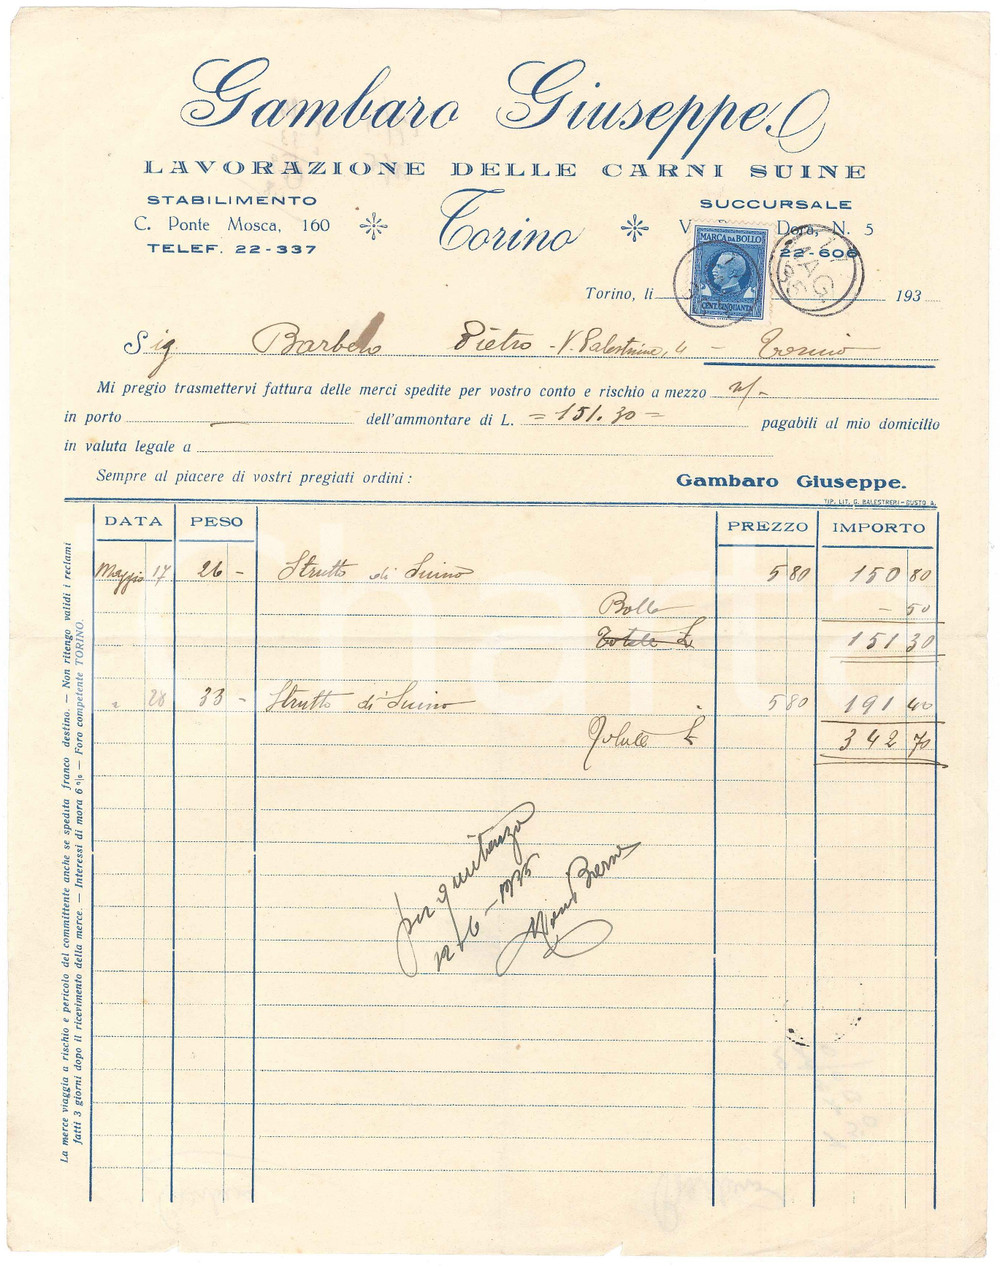 Gambaro Giuseppe
LAVORAZIONE DELLE CARNI SUINE
STABILIMENTO
C. Ponte Mosca, 160
TELEF. 22-337
Torino
SUCCURSALE
Dora, N. 5
22-606
MARCA DA BOLLO
CENT. CINQUANTA
17 MAG. 35
Torino, li 193
Sig Barbero Pietro - V. Palestrina, 4 - Torino
Mi pregio trasmettervi fattura delle merci spedite per vostro conto e rischio a mezzo
in porto — dell'ammontare di L. = 151.30 = pagabili al mio domicilio
in valuta legale a
Sempre al piacere di vostri pregiati ordini:
Gambaro Giuseppe.
TIP. LIT. G. BALESTRERI - GUSTO A.
DATA PESO PREZZO IMPORTO
Maggio 17 26 - Strutto di Suino 5 80 150 80
Bollo - 50
Totale L 151 30
" 28 33 - Strutto di Suino 5 80 191 40
Totale L 342 70
per quietanza
12-6-1935
La merce viaggia a rischio e pericolo del committente anche se spedita franco destino. — Non ritengo validi i reclami
fatti 3 giorni dopo il ricevimento della merce. — Interessi di mora 6 % — Foro competente TORINO.
Charta